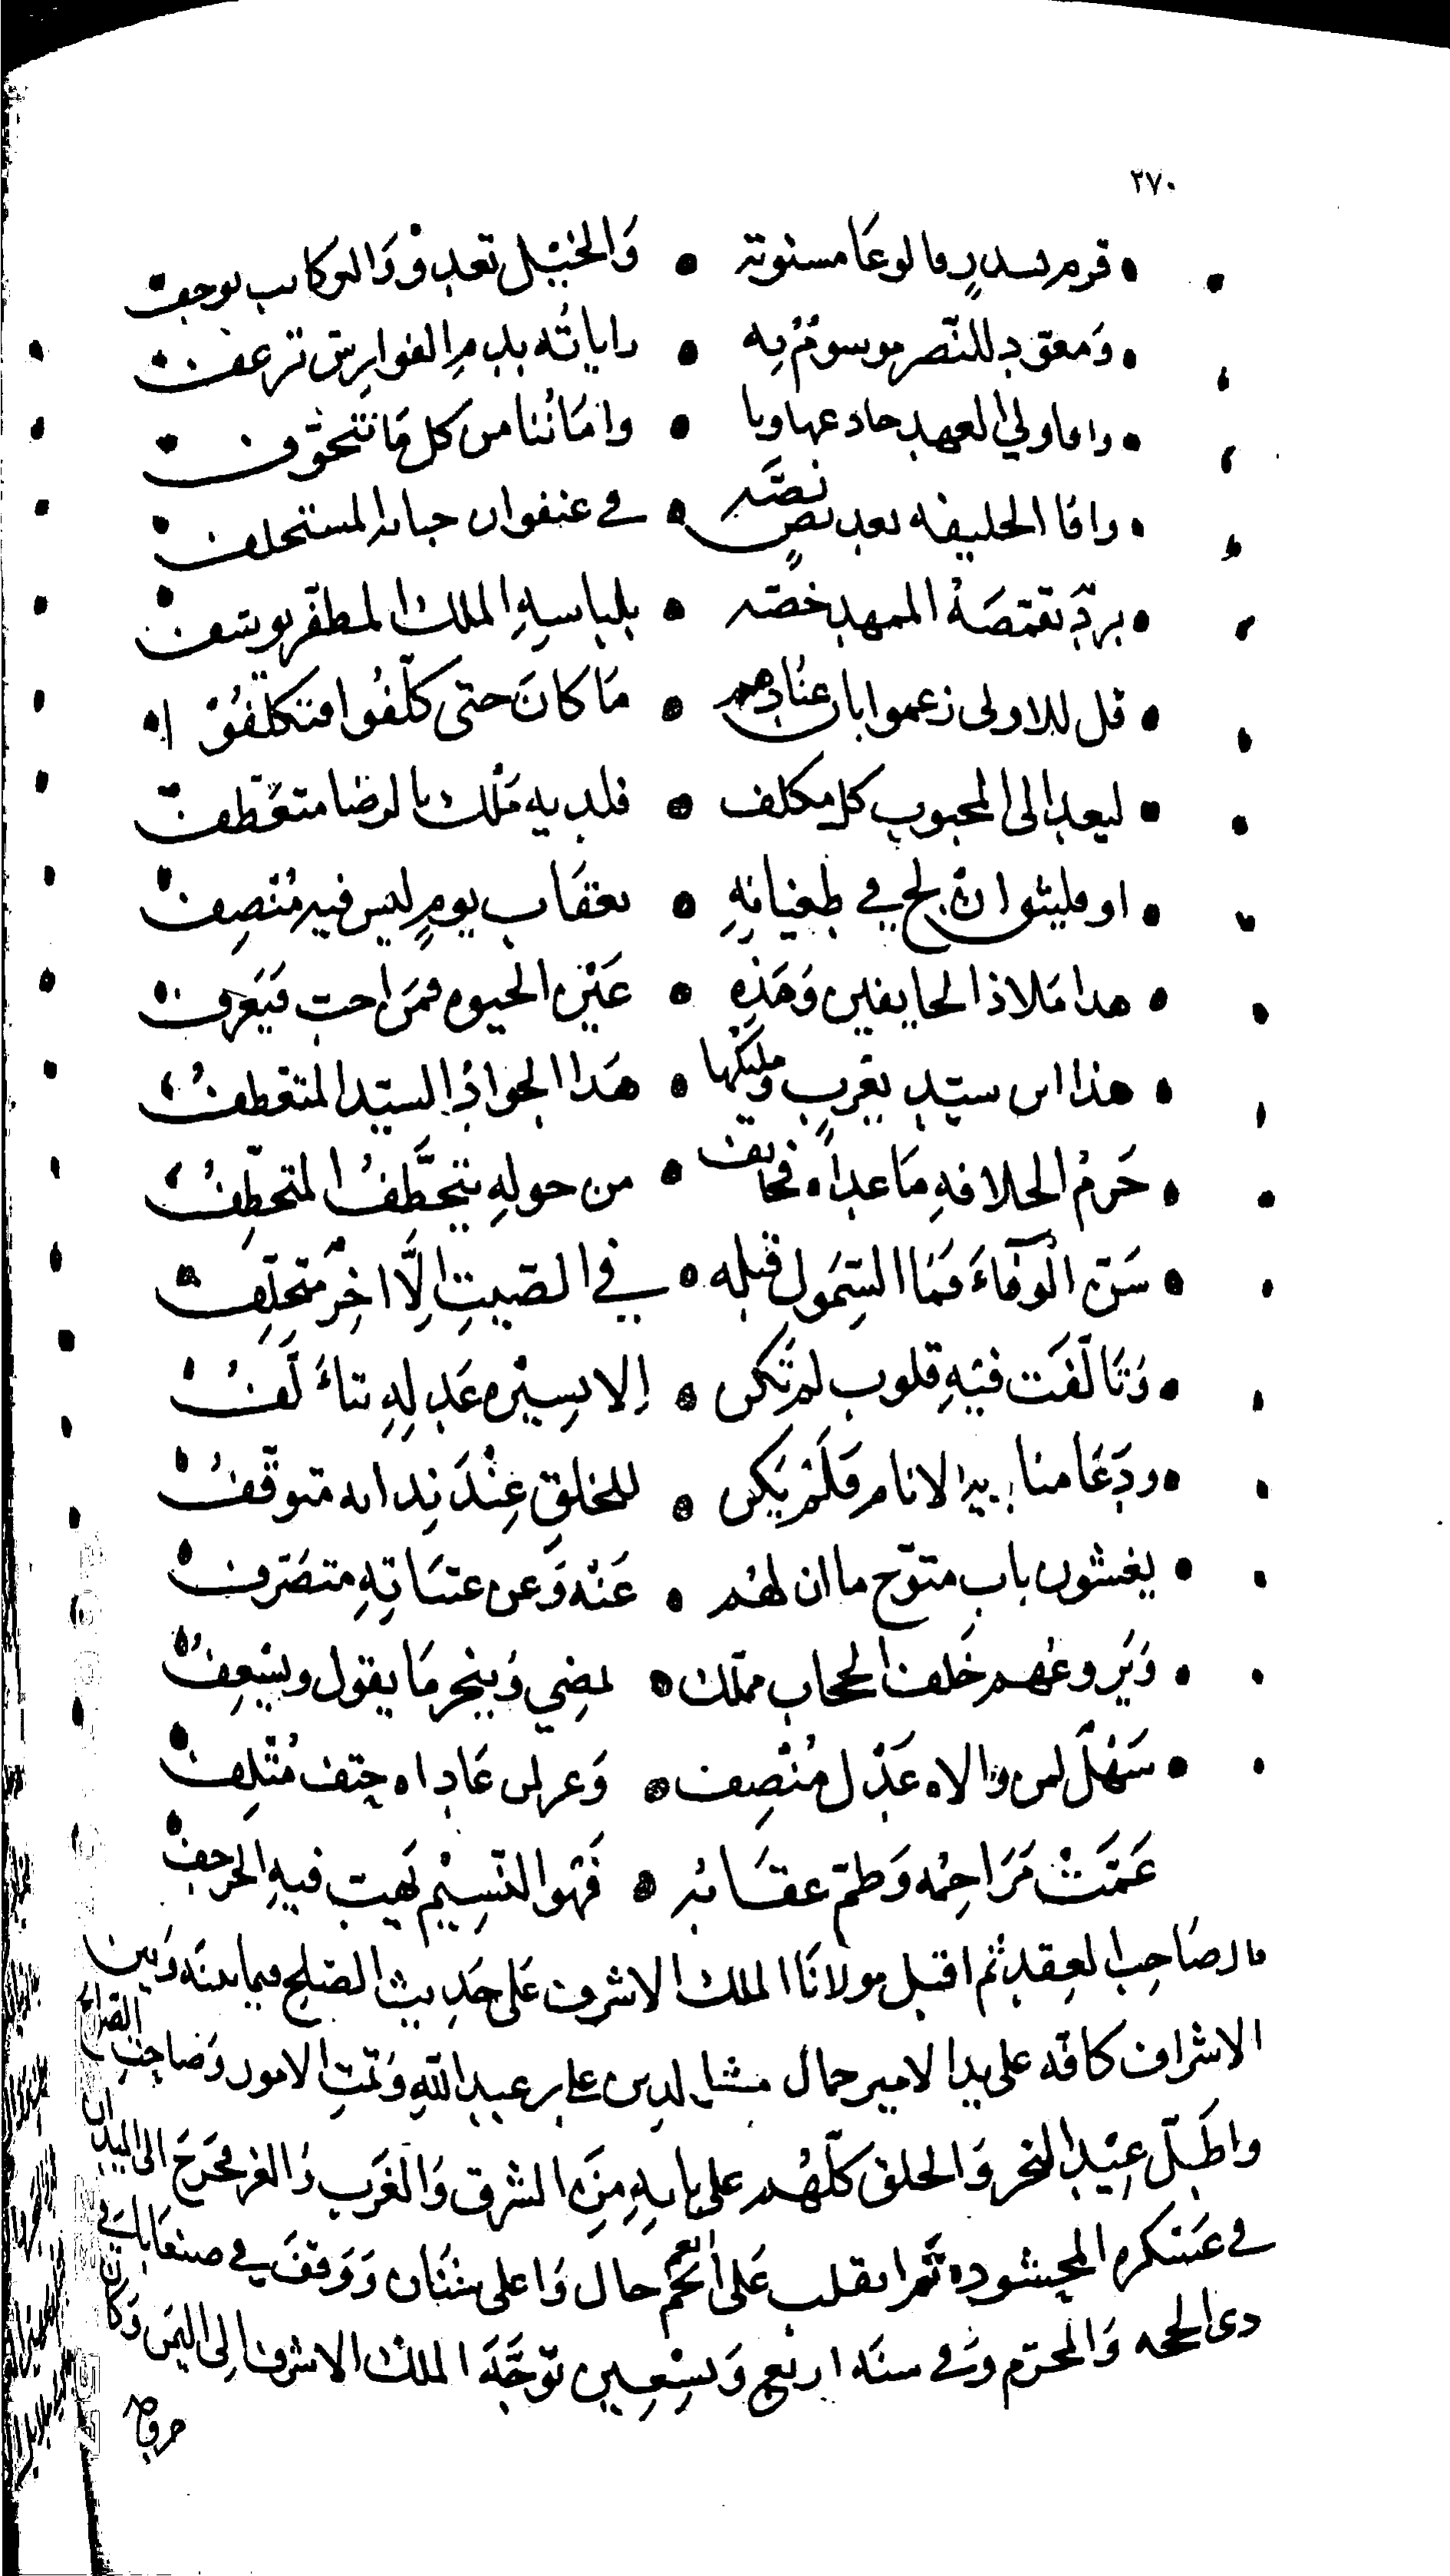 ٢٧٠
قرم يسدد بالوغا مسنونة • والخيل تعدو والمواكب توجف
ومعقود للنصر موسوم به • راياته بدم الفوارس ترعف
وافا ولي العهد حاد عهاديا • واماننا من كل ما نتخوف
وافا الخليفه بعد نص نصه • في عنفوان حياته المستخلف
برد تقمصه الممهد خصه • بلباسه الملك المظفر يوسف
قل للاولى زعموا بان عنادهم • ما كان حتى كلفوا فتكلفوا
ليعد الى المحبوب كل مكلف • فلديه ملك بالرضا متعطف
او فليثق ان لج في طغيانه • بعقاب يوم ليس فيه منصف
هذا ملاذ الخايفين وهذه • عين الحيوه فمن احب فيغرف
هذا ابن سيد يعرب ومليكها • هذا الجواد السيد المتعطف
حرم الخلافه ما عداه فخايف • من حوله يتخطف المتخطف
سن الوفاء فما السمول قبله • في الصيت الا اخر متخلف
وتالفت فيه قلوب لم تكن • الا بسيره عدله تتألف
ودعا منابيه الانام فلم يكن • للخلق عند ندايه متوقف
يغشون باب متوج ما ان لهم • عنه وعن عتباته متصرف
ويروعهم خلف الحجاب مملك • يمضي وينجز ما يقول ويسعف
سهل لمن والاه عدل منصف • وعر لمن عاداه حتف متلف
عمت مراحمه وطم عقابه • فهو النسيم يهب فيه الحرجف
قال صاحب العقد ثم اقبل مولانا الملك الاشرف على حديث الصلح فيما بينه وبين
الاشراف كافه على يد الامير جمال الدين علي بن عبد الله وتمت الامور وصاحب
واطل عيد النحر والخلق كلهم على بابه من الشرق والغرب والغز فخرج الى الميدان
في عسكره المحشوده ثم انقلب على انعم حال واعلى شان ووقف في صنعا باقي
ذي الحجه والمحرم وفي سنه اربع وتسعين توجه الملك الاشرف الى اليمن وكان